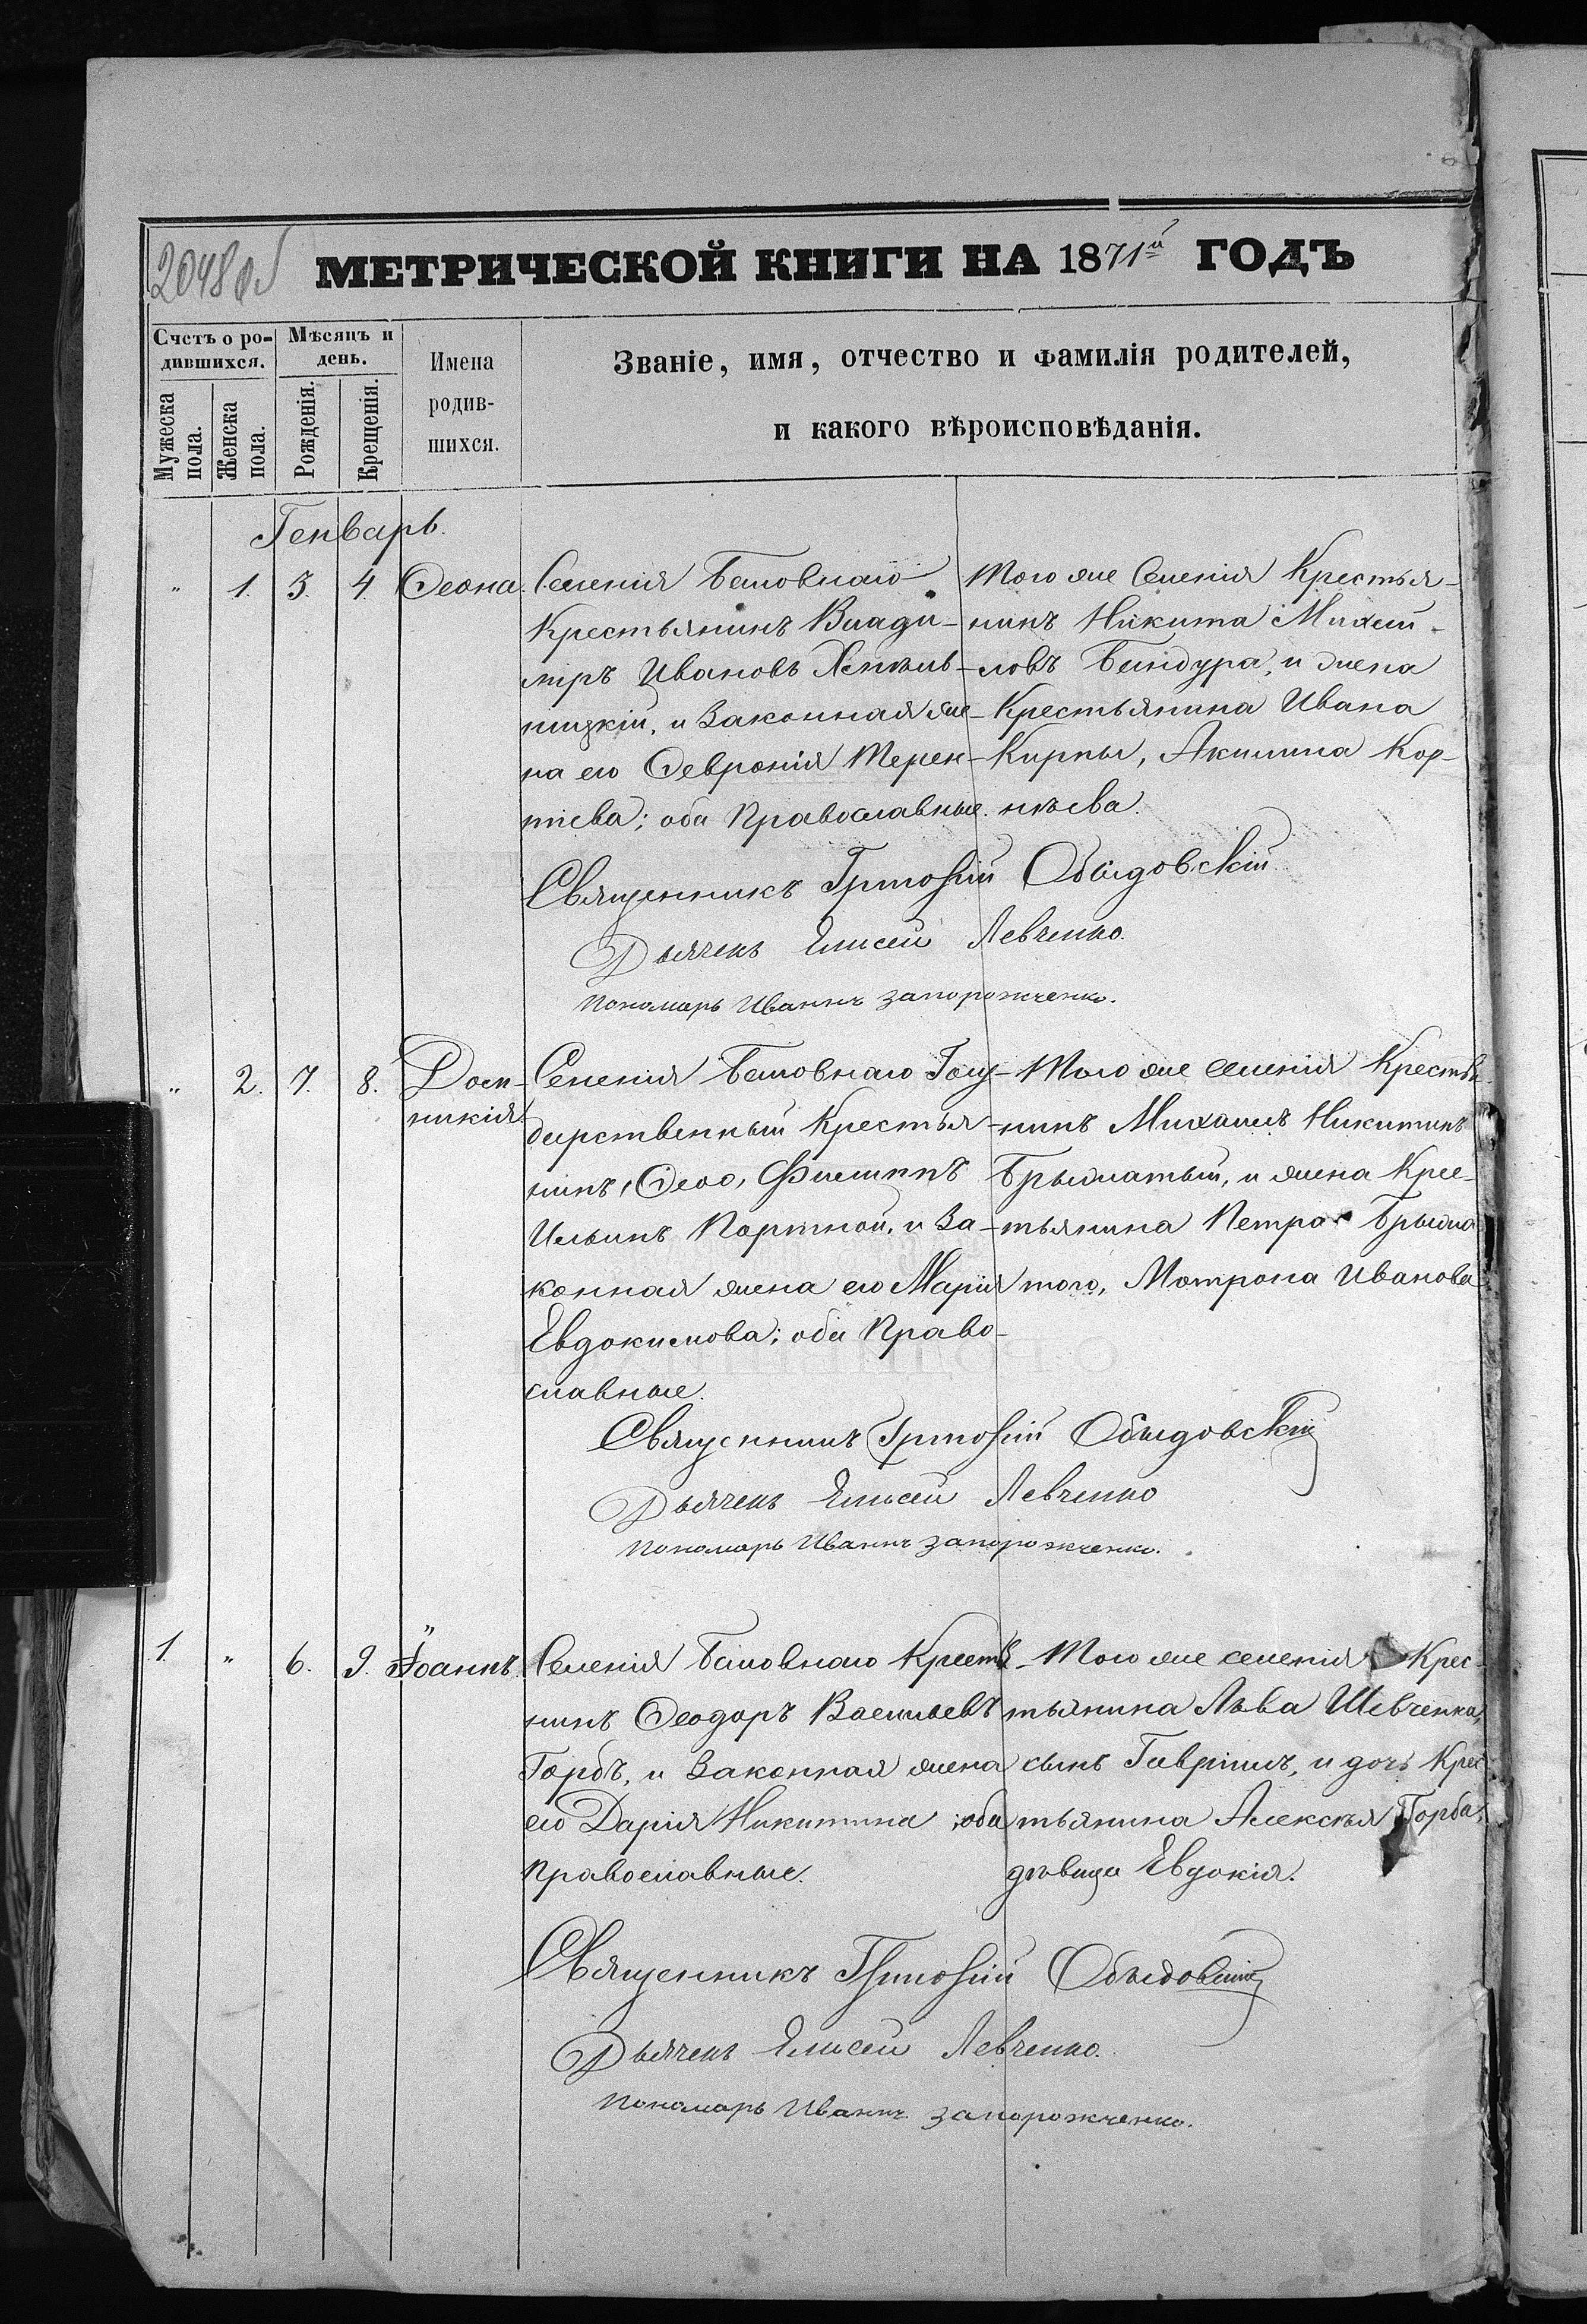 2048 об
МЕТРИЧЕСКОЙ КНИГИ НА 1871й ГОДЪ
Счетъ о ро-
дившихся.
Мѣсяцъ и
день.
Мужеска
пола.
Женска
пола.
Рожденія.
Крещенія.
Имена
родив-
шихся.
Званіе, имя, отчество и фамилія родителей,
и какого вѣроисповѣданія.
Генварь.
" 1. 3. 4. Ѳеона.
Селенія
Крестьянинъ Влади-
миръ Ивановъ
и законная же-
на его Ѳевронія Терен-
тіева; оба Православные.
Того же Селенія Крестья-
нинъ Никита Михай-
ловъ Бандура, и жена
Крестьянина Ивана
Кирпы, Акилина Кор-
нѣева.
Священникъ Обыдовскій
Дьячекъ Елисей Левченко.
Пономарь Иванъ Запорожченко.
" 2. 7. 8. Дом-
никія
Селенія Госу-
дарственный Крестья-
нинъ, Филиппъ
Ильинъ Портной, и за-
конная жена его Марія
Евдокимова; оба Право-
славные.
Того же селенія Крестья-
нинъ Михаилъ Никитинъ
и жена Крес-
тьянина Петра
того, Матрона Иванова
Священникъ Обыдовскій
Дьячекъ Елисей Левченко
Пономарь Иванъ Запорожченко.
1. " 6. 9. Іоаннъ.
Селенія Крестья-
нинъ Ѳеодоръ Васильевъ
Горбъ, и законная жена
его Дарія Никитина; оба
Православные.
Того же селенія Крес-
тьянина Льва Шевченка,
сынъ Гавріилъ, и дочь Крес
тьянина Алексѣя Горба,
дѣвица Евдокія.
Священникъ Обыдовскій
Дьячекъ Елисей Левченко.
Пономарь Иванъ Запорожченко.